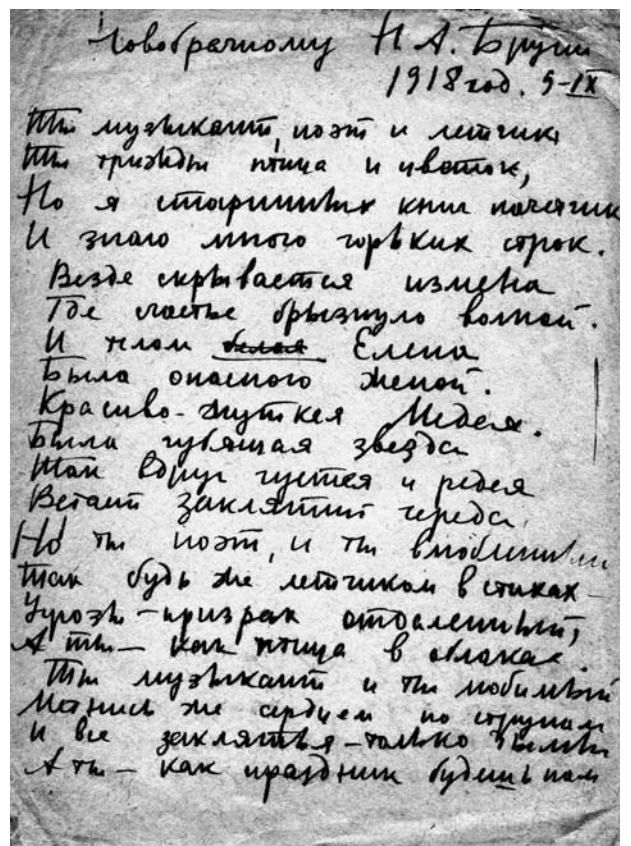 Новобрачному Н. А. Бруни
1918 год. 9-IX
Ты музыкант, поэт и летчик,
Ты трижды птица и цветок,
Но я старинных книг начетчик
И знаю много горьких строк.
Везде скрывается измена
Где счастье брызнуло волной.
И белая Елена
Была опасного женой.
Красиво-жуткая Медея.
Была губящая звезда
Так вдруг густея и редея
Встает заклятий череда.
Но ты поэт, и ты влюбленный
Так будь же летчиком в стихах –
Угрозы – призрак отдаленный,
А ты – как птица в облаках.
Ты музыкант и ты любимый
Метнись же сердцем по струнам
И все заклятья – только дымы
А ты – как праздник будешь нам